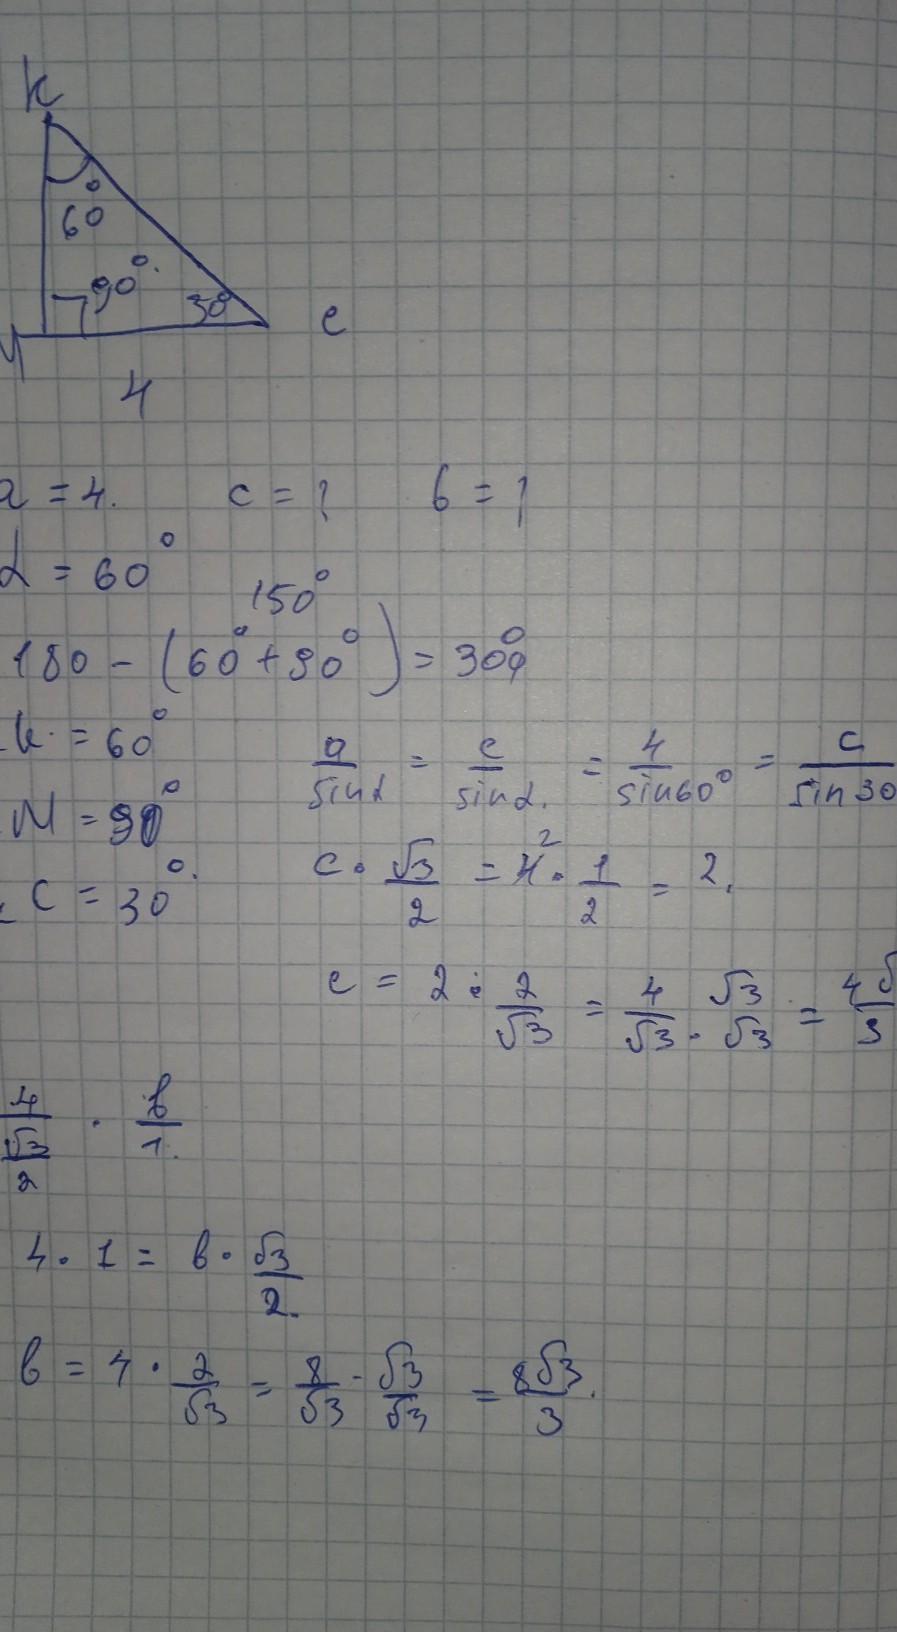 K
60°
90°
30°
e
4
a = 4. c = ? b = ?
α = 60°
150°
180 - (60° + 90°) = 30°
k = 60°
a/sinα = c/sinα. = 4/sin60° = c/sin30
N = 90°
c · √3/2 = 4² · 1/2 = 2.
C = 30°.
c = 2 : 2/√3 = 4/√3 · √3/√3 = 4√/3
4/(√3/2) · b/1.
4 · 1 = b · √3/2.
b = 4 · 2/√3 = 8/√3 · √3/√3 = 8√3/3.